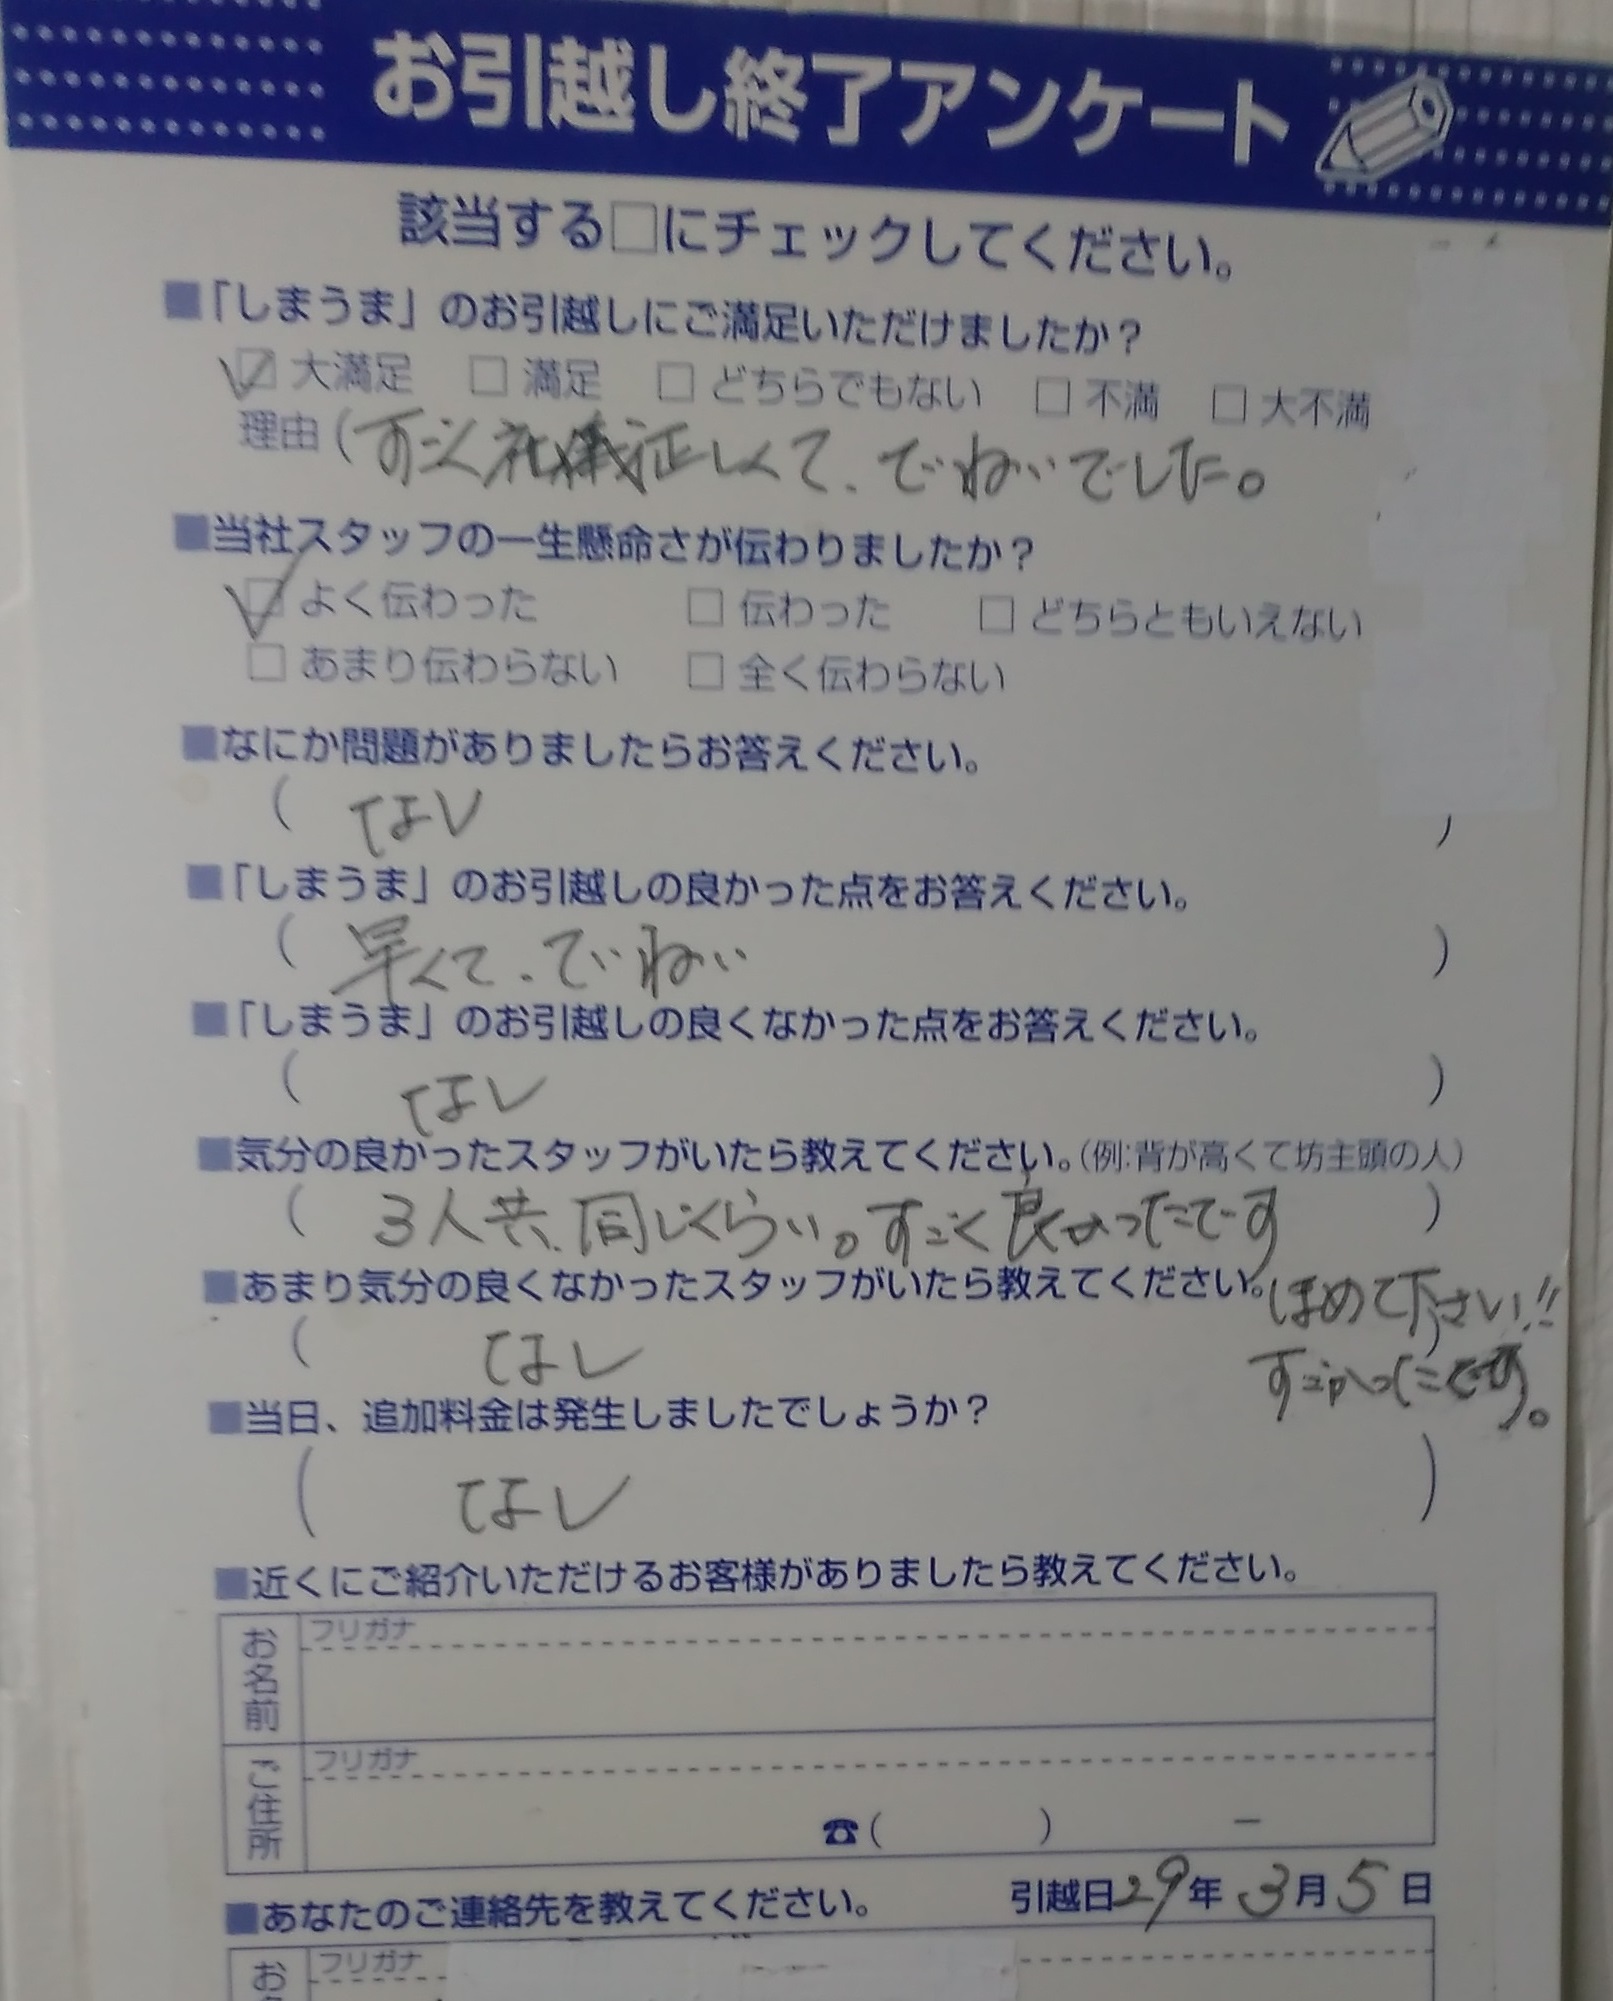 お引越し終了アンケート
該当する□にチェックしてください。
■「しまうま」のお引越しにご満足いただけましたか？
☑ 大満足 □ 満足 □ どちらでもない □ 不満 □ 大不満
理由（すごく礼儀正しくて、ていねいでした。
■当社スタッフの一生懸命さが伝わりましたか？
☑ よく伝わった □ 伝わった □ どちらともいえない
□ あまり伝わらない □ 全く伝わらない
■なにか問題がありましたらお答えください。
（ なし ）
■「しまうま」のお引越しの良かった点をお答えください。
（ 早くて、ていねい ）
■「しまうま」のお引越しの良くなかった点をお答えください。
（ なし ）
■気分の良かったスタッフがいたら教えてください。（例:背が高くて坊主頭の人）
（ 3人共、同じくらい。すごく良かったです ）
ほめて下さい!!
すごかったです。
■あまり気分の良くなかったスタッフがいたら教えてください。
（ なし ）
■当日、追加料金は発生しましたでしょうか？
（ なし ）
■近くにご紹介いただけるお客様がありましたら教えてください。
お名前 フリガナ
ご住所 フリガナ
☎（ ） −
■あなたのご連絡先を教えてください。 引越日29年3月5日
お フリガナ